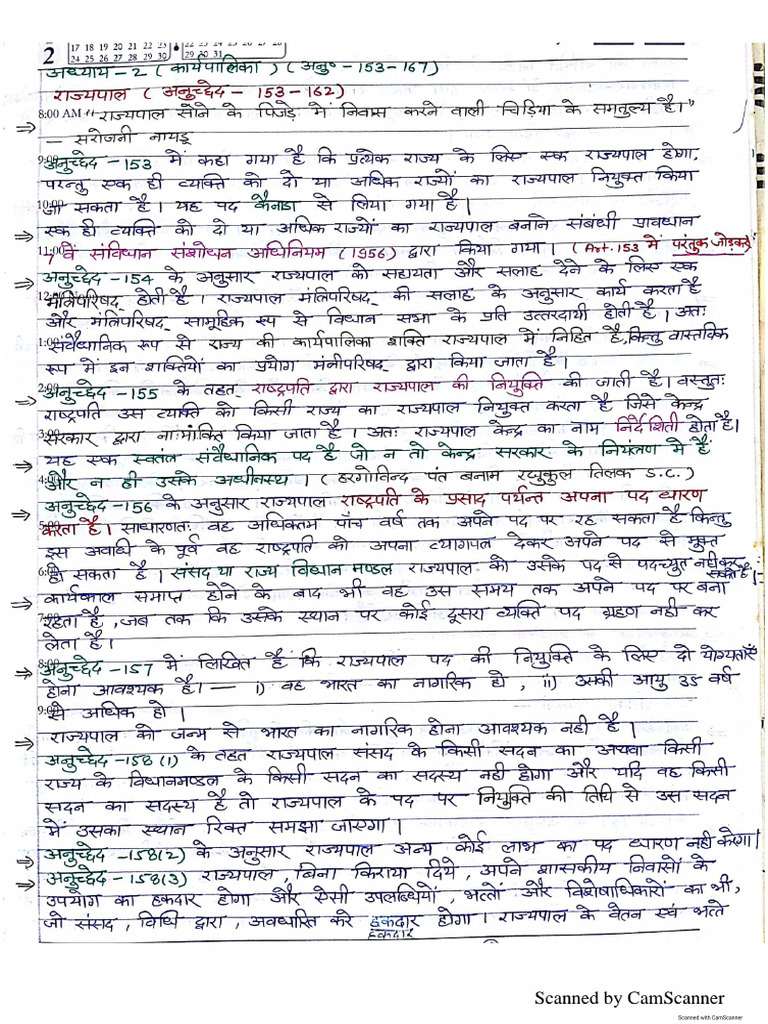 2
17 18 19 20 21 22 23
24 25 26 27 28 29 30
22 23 24 25 26 27 28
29 30 31
अध्याय - 2 ( कार्यपालिका ) ( अनु॰ -153-167)
राज्यपाल ( अनुच्छेद - 153 -162)
8:00 AM "राज्यपाल सोने के पिंजड़े में निवास करने वाली चिड़िया के समतुल्य है।"
⇒ — सरोजनी नायडू
9:00 अनुच्छेद -153 में कहा गया है कि प्रत्येक राज्य के लिए एक राज्यपाल होगा,
परन्तु एक ही व्यक्ति को दो या अधिक राज्यों का राज्यपाल नियुक्त किया
10:00 जा सकता है। यह पद कैनाडा से लिया गया है।
⇒ एक ही व्यक्ति को दो या अधिक राज्यों का राज्यपाल बनाने संबंधी प्रावधान
11:00 7वें संविधान संशोधन अधिनियम (1956) द्वारा किया गया। (Art.153 में परंतुक जोड़कर)
⇒ अनुच्छेद -154 के अनुसार राज्यपाल को सहायता और सलाह देने के लिए एक
12:00 मंत्रिपरिषद् होती है। राज्यपाल मंत्रिपरिषद् की सलाह के अनुसार कार्य करता है
और मंत्रिपरिषद् सामूहिक रूप से विधान सभा के प्रति उत्तरदायी होती है। अतः
1:00 संवैधानिक रूप से राज्य की कार्यपालिका शक्ति राज्यपाल में निहित है, किन्तु वास्तविक
रूप में इन शक्तियों का प्रयोग मंत्रीपरिषद् द्वारा किया जाता है।
2:00 ⇒ अनुच्छेद -155 के तहत राष्ट्रपति द्वारा राज्यपाल की नियुक्ति की जाती है। वस्तुतः
राष्ट्रपति उस व्यक्ति को किसी राज्य का राज्यपाल नियुक्त करता है जिसे केन्द्र
3:00 सरकार द्वारा नामांकित किया जाता है। अतः राज्यपाल केन्द्र का नाम निर्देशिती होता है।
⇒ यह एक स्वतंत्र संवैधानिक पद है जो न तो केन्द्र सरकार के नियंत्रण में है
4:00 और न ही उसके अधीनस्थ। (हरगोविन्द पंत बनाम रघुकुल तिलक S.C.)
⇒ अनुच्छेद -156 के अनुसार राज्यपाल राष्ट्रपति के प्रसाद पर्यन्त अपना पद धारण
5:00 करता है। साधारणतः वह अधिकतम पाँच वर्ष तक अपने पद पर रह सकता है किन्तु
इस अवधि के पूर्व वह राष्ट्रपति को अपना त्यागपत्र देकर अपने पद से मुक्त
6:00 हो सकता है। संसद या राज्य विधान मण्डल राज्यपाल को उसके पद से पदच्युत नहीं कर सकते है।
⇒ कार्यकाल समाप्त होने के बाद भी वह उस समय तक अपने पद पर बना
7:00 रहता है, जब तक कि उसके स्थान पर कोई दूसरा व्यक्ति पद ग्रहण नहीं कर
लेता है।
8:00 ⇒ अनुच्छेद -157 में लिखित है कि राज्यपाल पद की नियुक्ति के लिए दो योग्यताएँ
होना आवश्यक है। — i) वह भारत का नागरिक हो, ii) उसकी आयु 35 वर्ष
9:00 से अधिक हो।
⇒ राज्यपाल को जन्म से भारत का नागरिक होना आवश्यक नही है।
⇒ अनुच्छेद -158 (1) के तहत राज्यपाल संसद के किसी सदन का अथवा किसी
राज्य के विधानमण्डल के किसी सदन का सदस्य नही होगा और यदि वह किसी
सदन का सदस्य है तो राज्यपाल के पद पर नियुक्ति की तिथि से उस सदन
में उसका स्थान रिक्त समझा जाएगा।
⇒ अनुच्छेद -158(2) के अनुसार राज्यपाल अन्य कोई लाभ का पद धारण नही करेगा।
⇒ अनुच्छेद -158(3) राज्यपाल, बिना किराया दिये, अपने शासकीय निवासों के
उपयोग का हकदार होगा और ऐसी उपलब्धियों, भत्तों और विशेषाधिकारों का भी,
जो संसद, विधि द्वारा, अवधारित करे हकदार होगा। राज्यपाल के वेतन एवं भत्ते
हकदार
Scanned by CamScanner
Scanned with CamScanner